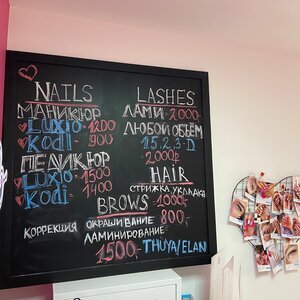 NAILS
МАНИКЮР
LUXIO-1200
KODI-900
ПЕДИКЮР
LUXIO-1500
KODI-1400
LASHES
ЛАМИ-2000
ЛЮБОЙ ОБЪЁМ
1.5, 2, 3-D
2000₽
HAIR
СТРИЖКА УКЛАДКА
1000-
BROWS
КОРРЕКЦИЯ
ОКРАШИВАНИЕ 800-
ЛАМИНИРОВАНИЕ
1500- THUYA/ELAN